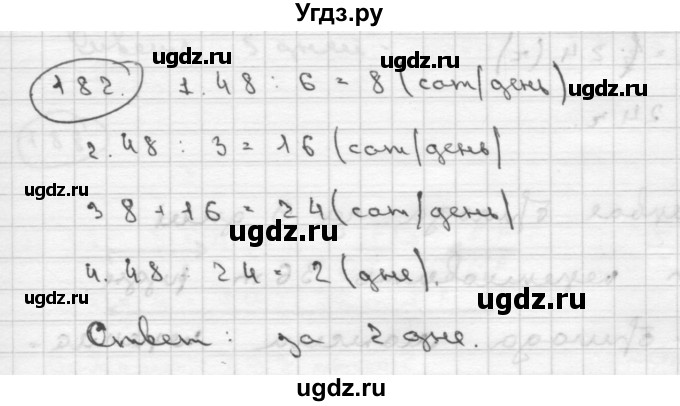 Угдз.ру
ugdz.ru
182. 1. 48 : 6 = 8 (сот/день)
ugdz.ru
2. 48 : 3 = 16 (сот/день)
ugdz.ru
ugdz.ru
3 8 + 16 = 24 (сот/день)
ugdz.ru
4. 48 : 24 = 2 (дне).
ugdz.ru
ugdz.ru
Ответ: за 2 дне.
ugdz.ru
ugdz.ru